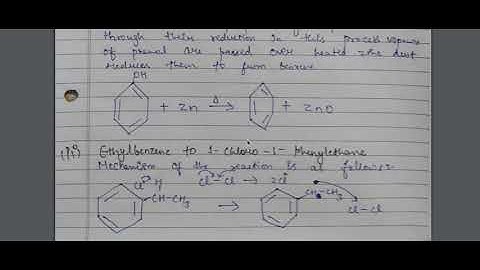 through their reduction In this process vapours
of phenol are passed over heated zinc dust
reduces them to form benzene
OH
+ Zn Δ → + ZnO
(iii) Ethylbenzene to 1-Chloro-1-Phenylethane
Mechanism of the reaction is as follows:-
Cl H Cl-Cl → 2Cl
CH-CH3 → CH-CH3
Cl-Cl